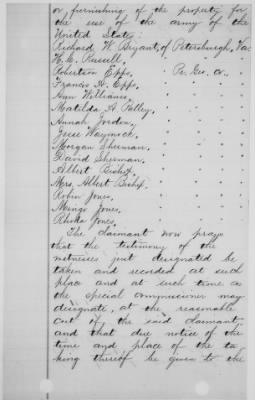 or furnishing of the property for
the use of the army of the
United States:
Richard W. Bryant, of Petersburgh, Va:
H. C. Russell,
Robertson Epps, " Pr. Geo. Co.,
Francis H. Epps, " " " "
Ann Williams, " " " "
Matilda A. Talley, " " " "
Annah Jordon, " " " "
Jesse Waymock, " " " "
Morgan Sherman, " " " "
David Sherman, " " " "
Albert Bishop, " " " "
Mrs. Albert Bishop, " " " "
Robin Jones, " " " "
Mingo Jones, " " " "
Jones, " " " "
The claimant now prays
that the testimony of the
witnesses just designated be
taken and recorded at such
place and at such time as
the special commissioner may
designate, at the reasonable
cost of the said claimant,
and that due notice of the
time and place of the ta-
king thereof be given to the